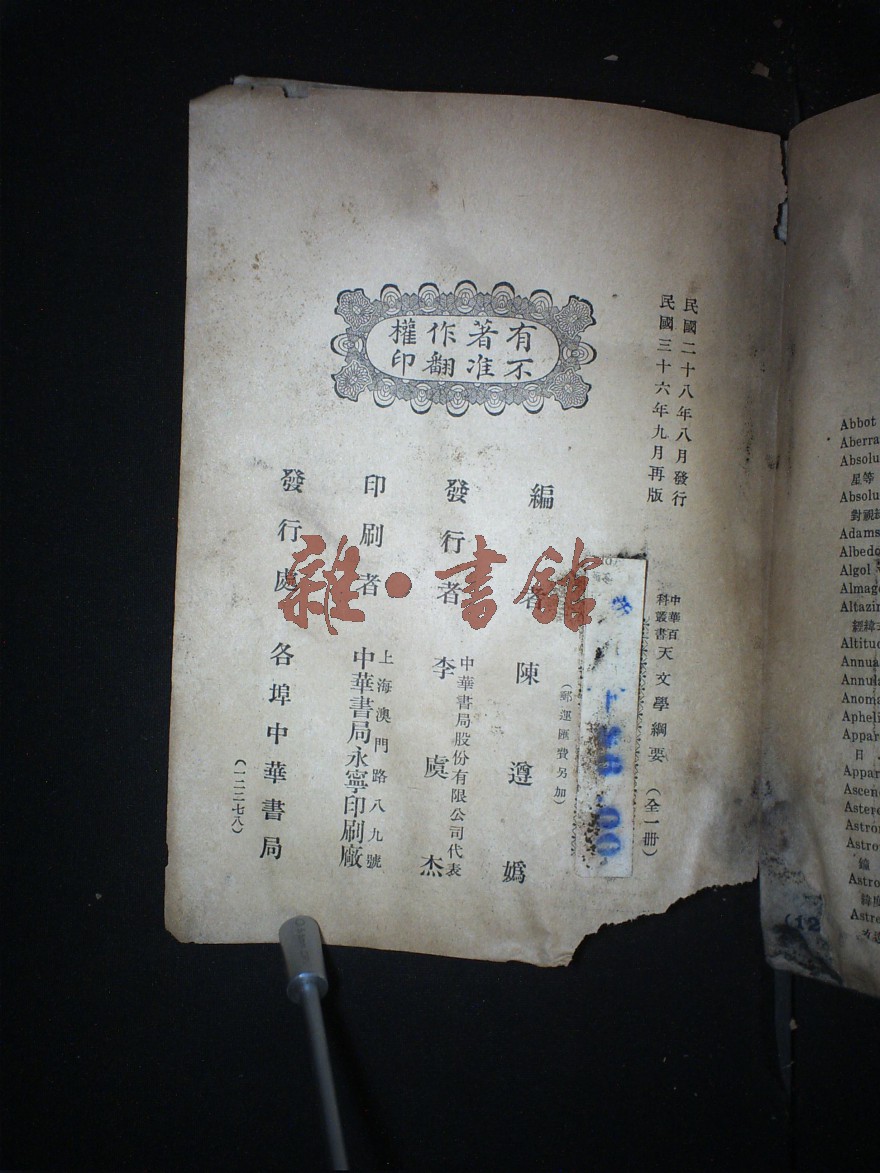 民國二十八年八月發行
民國三十六年九月再版
中華百科叢書 天文學綱要 (全一冊)
(郵運匯費另加)
有著作權
不准翻印
編者 陳遵媯
發行者 中華書局股份有限公司代表
李虞杰
印刷者 上海澳門路八九號
中華書局永寧印刷廠
發行處 各埠中華書局
(一二三七八)
雜·書館
Abbot
Aberra
Absolu
星等
Absolu
對視
Adams
Albedo
Algol
Almage
Altazi
經緯
Altitud
Annua
Annul
Anoma
Apheli
Appar
日
Appar
Ascen
Astere
Astron
Astro
Astro
Astre
(12